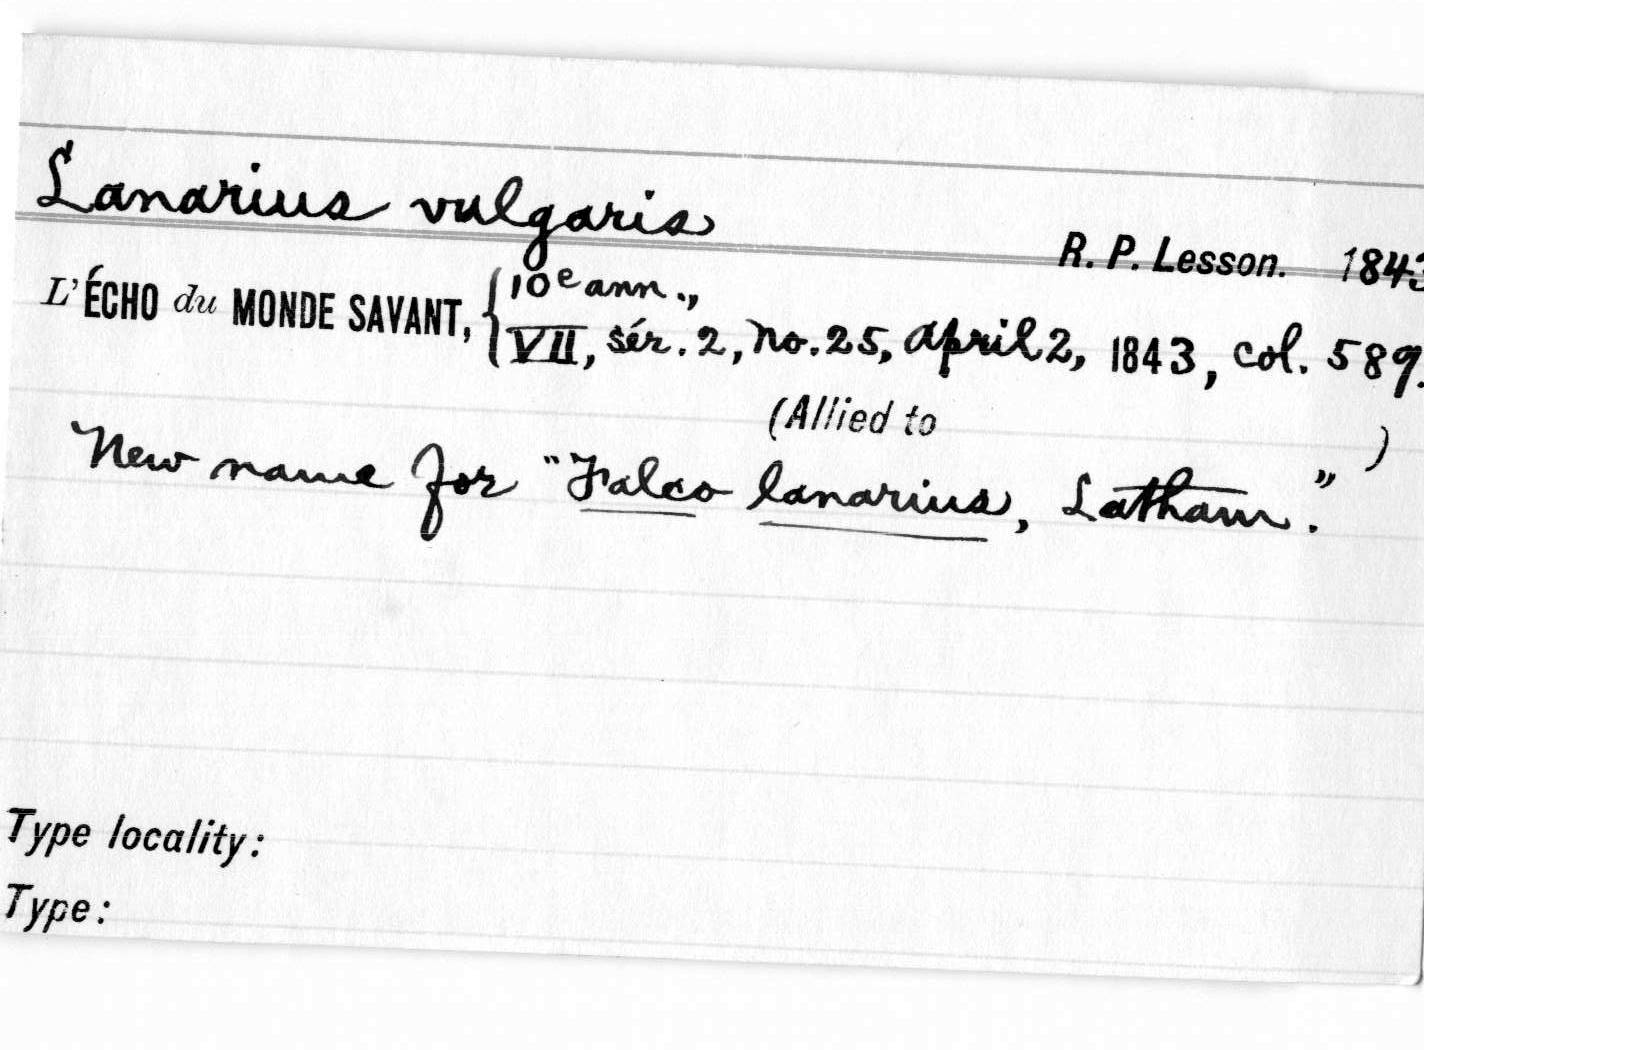 Lanarius vulgaris
R. P. Lesson. 1843
L'ÉCHO du MONDE SAVANT, {10e ann.,
VII, sér. 2, no. 25, April 2, 1843, col. 589.
(Allied to )
New name for "Falco lanarius, Latham."
Type locality:
Type: